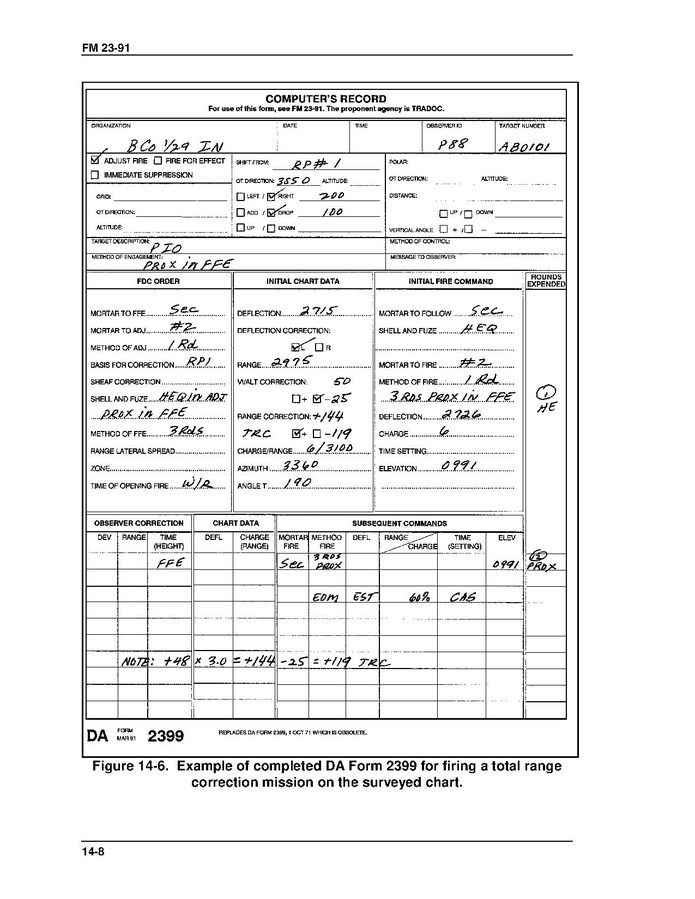 FM 23-91
COMPUTER'S RECORD
For use of this form, see FM 23-91. The proponent agency is TRADOC.
ORGANIZATION DATE TIME OBSERVER ID TARGET NUMBER
B Co 1/29 IN P88 AB0101
ADJUST FIRE FIRE FOR EFFECT SHIFT FROM: RP# 1 POLAR:
IMMEDIATE SUPPRESSION OT DIRECTION: 3550 ALTITUDE: OT DIRECTION: ALTITUDE:
GRID: LEFT / RIGHT 200 DISTANCE:
OT DIRECTION: ADD / DROP 100 UP / DOWN
ALTITUDE: UP / DOWN VERTICAL ANGLE + / -
TARGET DESCRIPTION: PIO METHOD OF CONTROL:
METHOD OF ENGAGEMENT: PROX in FFE MESSAGE TO OBSERVER:
FDC ORDER INITIAL CHART DATA INITIAL FIRE COMMAND ROUNDS EXPENDED
MORTAR TO FFE Sec DEFLECTION 2715 MORTAR TO FOLLOW Sec
MORTAR TO ADJ #2 DEFLECTION CORRECTION: SHELL AND FUZE HEQ
METHOD OF ADJ 1 Rd L R
BASIS FOR CORRECTION RP1 RANGE 2975 MORTAR TO FIRE #2
SHEAF CORRECTION VI/ALT CORRECTION: 50 METHOD OF FIRE 1 Rd
SHELL AND FUZE HEQ in ADJ + - -25 3 RDS PROX IN FFE 1 HE
PROX in FFE RANGE CORRECTION: +144 DEFLECTION 2726
METHOD OF FFE 3 Rds TRC + - -119 CHARGE 6
RANGE LATERAL SPREAD CHARGE/RANGE 6/3100 TIME SETTING
ZONE AZIMUTH 3360 ELEVATION 0991
TIME OF OPENING FIRE W/R ANGLE T 190
OBSERVER CORRECTION CHART DATA SUBSEQUENT COMMANDS
DEV RANGE TIME (HEIGHT) DEFL CHARGE (RANGE) MORTAR FIRE METHOD FIRE DEFL RANGE CHARGE TIME (SETTING) ELEV
FFE Sec 3 RDS PROX 0991 PROX
EOM EST 60% CAS
NOTE: +48 x 3.0 = +144 -25 = +119 TRC
DA FORM MAR 91 2399 REPLACES DA FORM 2399, 1 OCT 71 WHICH IS OBSOLETE.
Figure 14-6. Example of completed DA Form 2399 for firing a total range
correction mission on the surveyed chart.
14-8